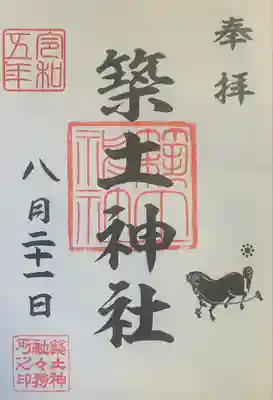 奉拝
築土神社
令和
五年
八月二十一日
築土神
社々務
所之印